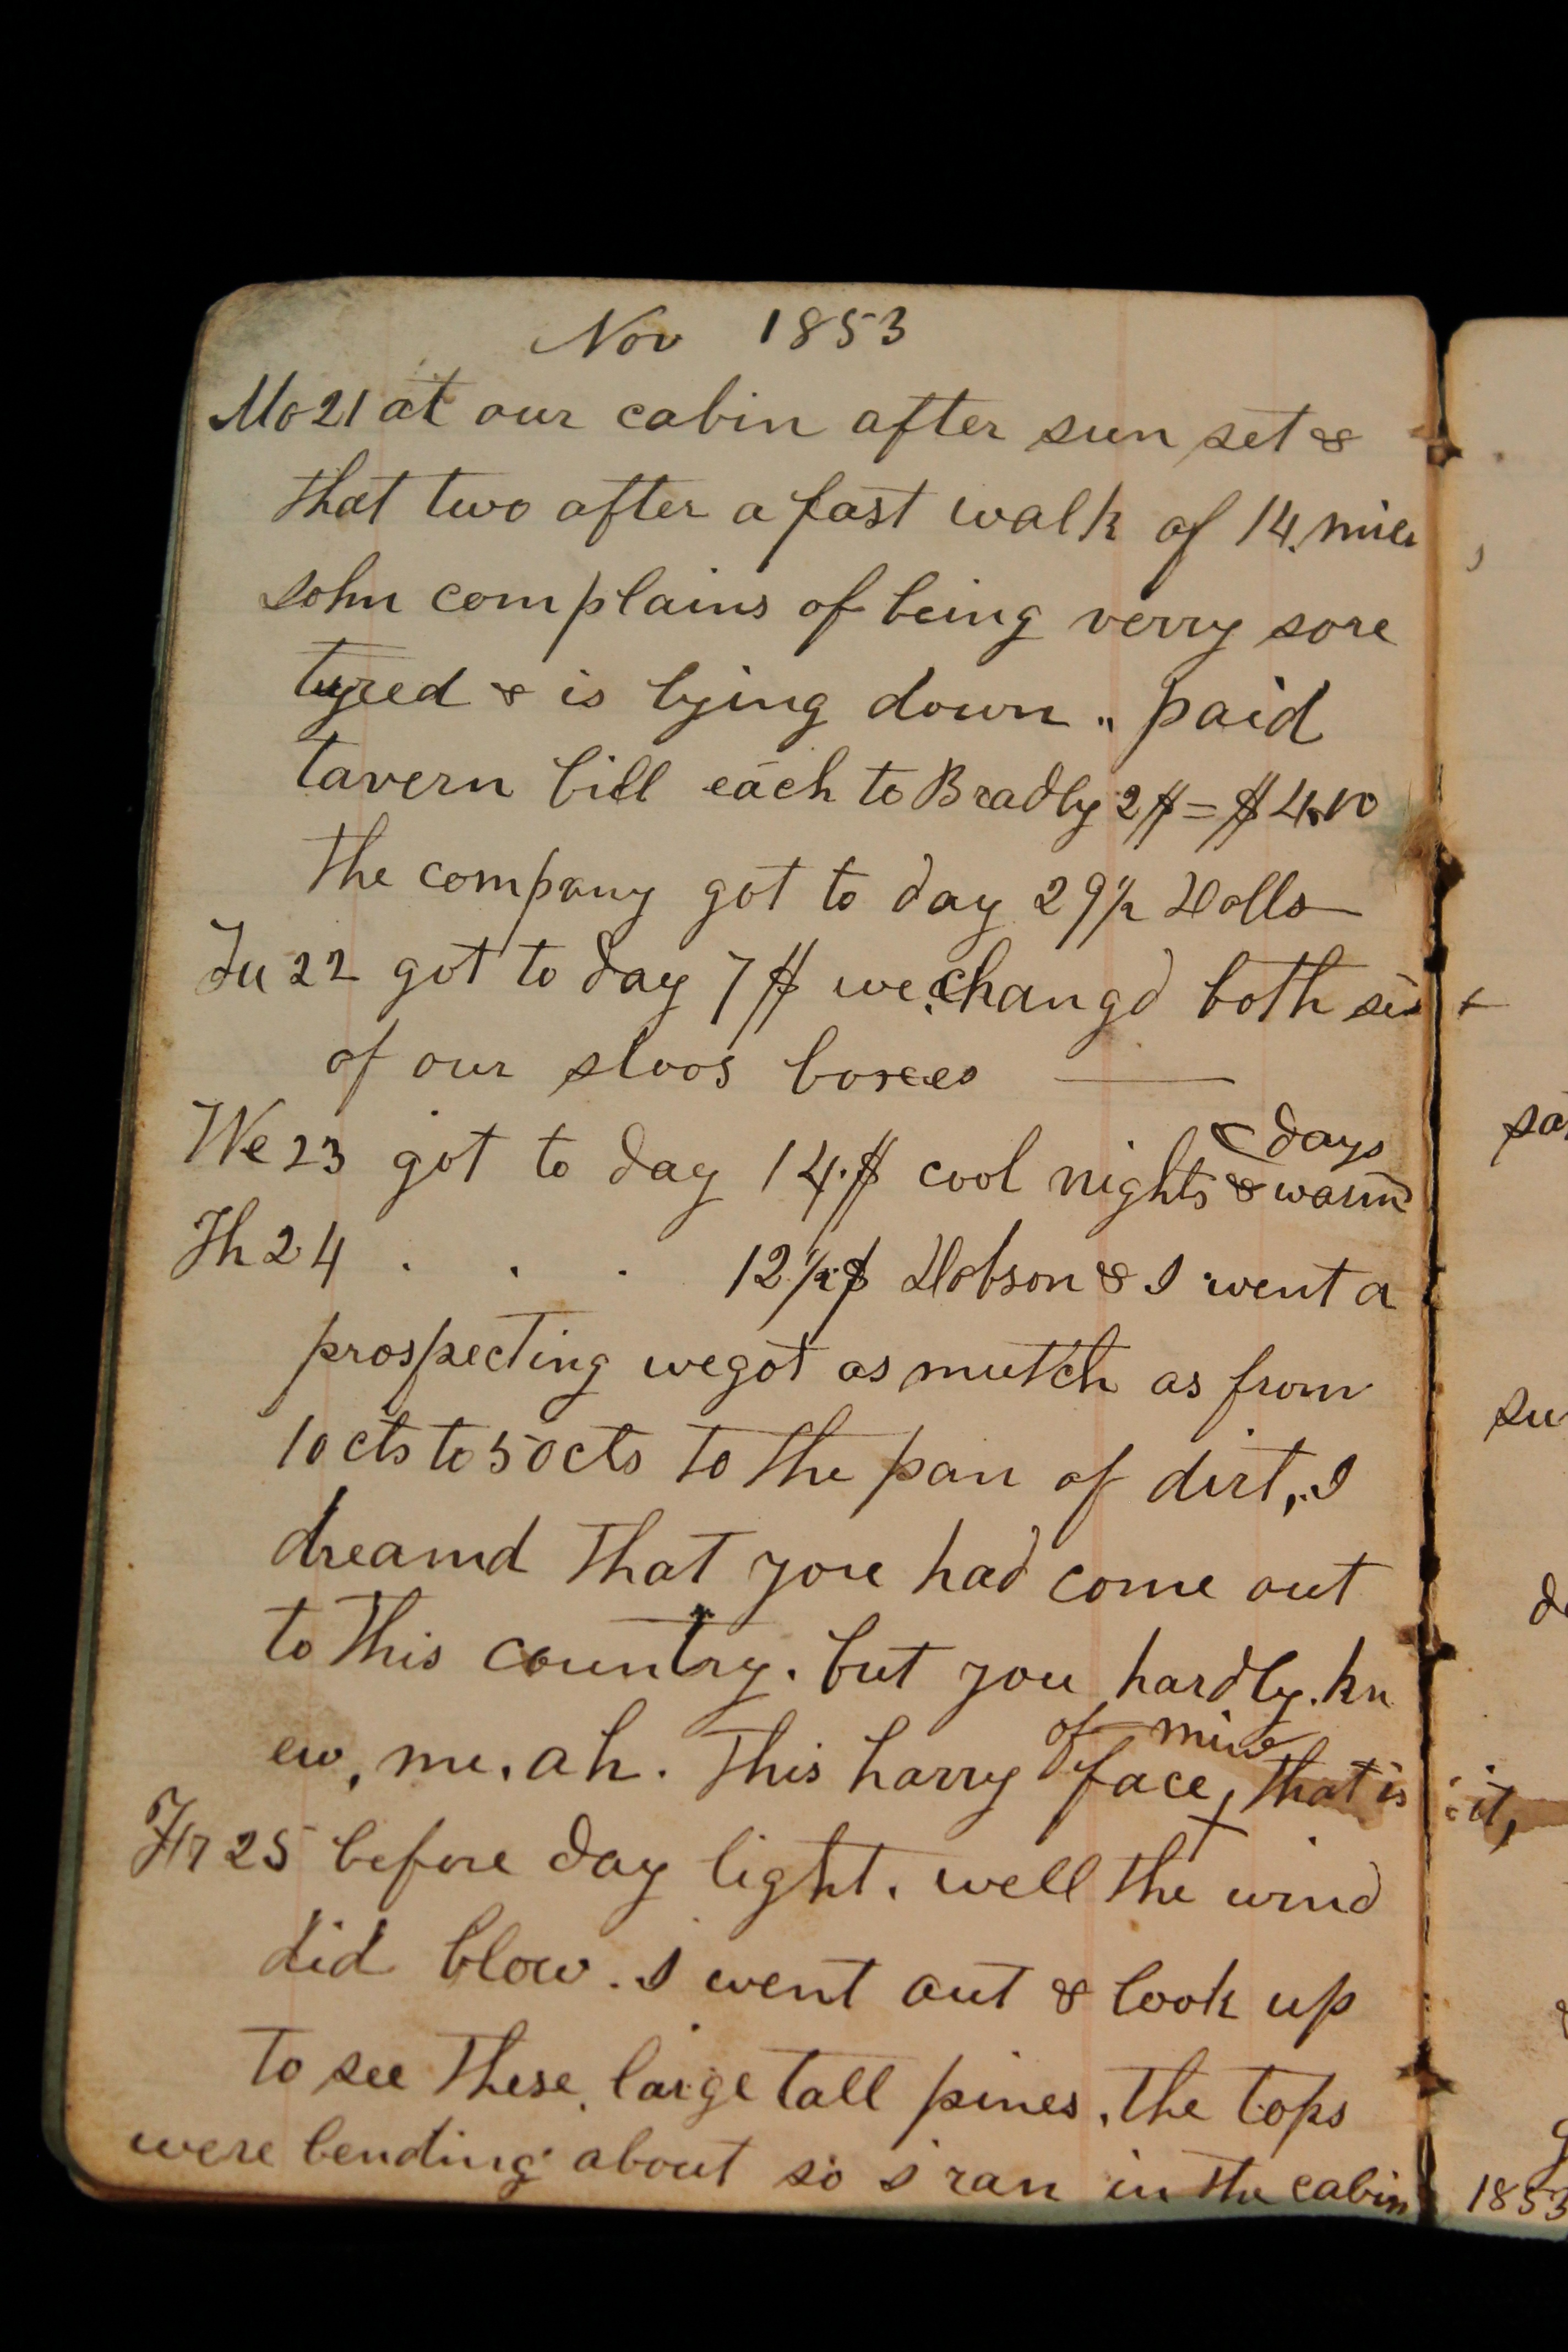 Nov 1853
Mo 21 at our cabin after sun set &
that two after a fast walk of 14. miles
John complains of being verry sore
tyred & is lying down „ paid
tavern bill each to Bradly 2$ = $4.00
the company got to day 29½ Dolls —
Tu 22 got to day 7$ we changd both
of our sloos boxces —
We 23 got to day 14.$ cool nights & warm days
Th 24 . . . 12½$ Dobson & I went a
prospecting we got as mutch as from
10 cts to 50 cts to the pan of dirt, I
dreamd that you had come out
to this country. but you hardly. kn
ew, me. ah. this harry face of mine, that is it,
Fr 25 before day light. well the wind
did blow. I went out & look up
to see these large tall pines. the tops
were bending about so I ran in the cabin
1853